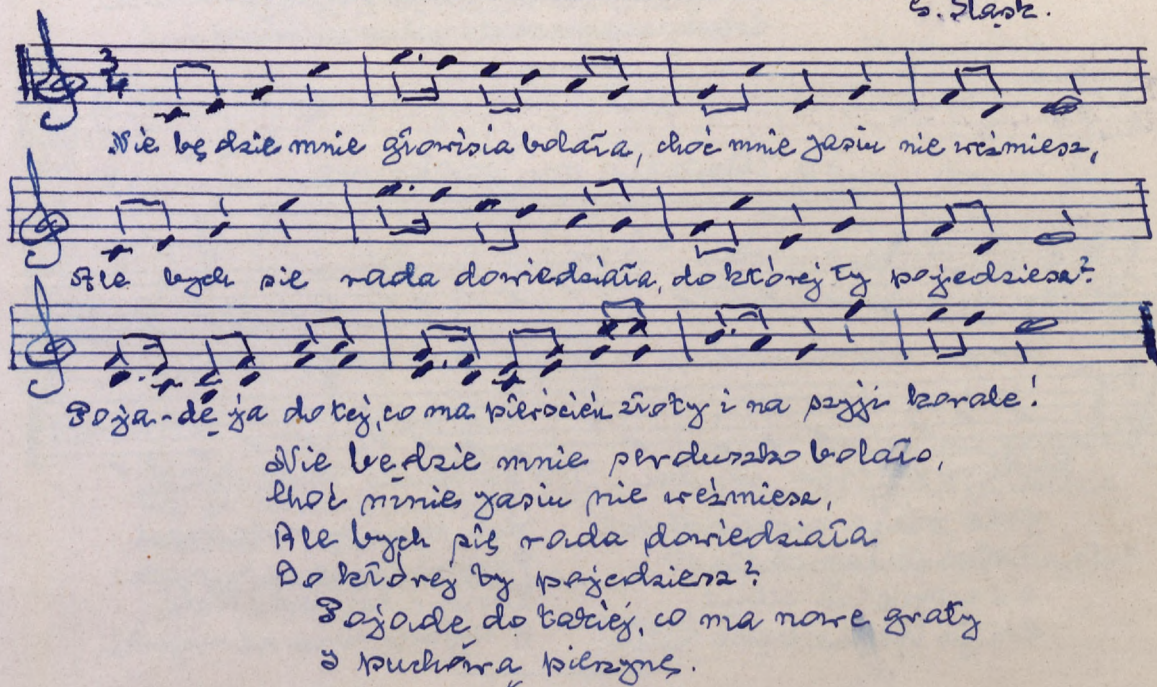 G. Śląsk.
3/4
Nie będzie mnie głowisia bolała, choć mnie Jasiu nie weźmiesz,
Ale bych sie rada dowiedziała, do której ty pojedziesz?
Poja-dę ja do tej, co ma pierścień złoty i na szyji korale!
Nie będzie mnie serduszko bolało,
Choć mnie Jasiu nie weźmiesz,
Ale bych się rada dowiedziała
Do której ty pojedziesz?
Pojadę do takiej, co ma nowe graty
I puchową pierzynę.